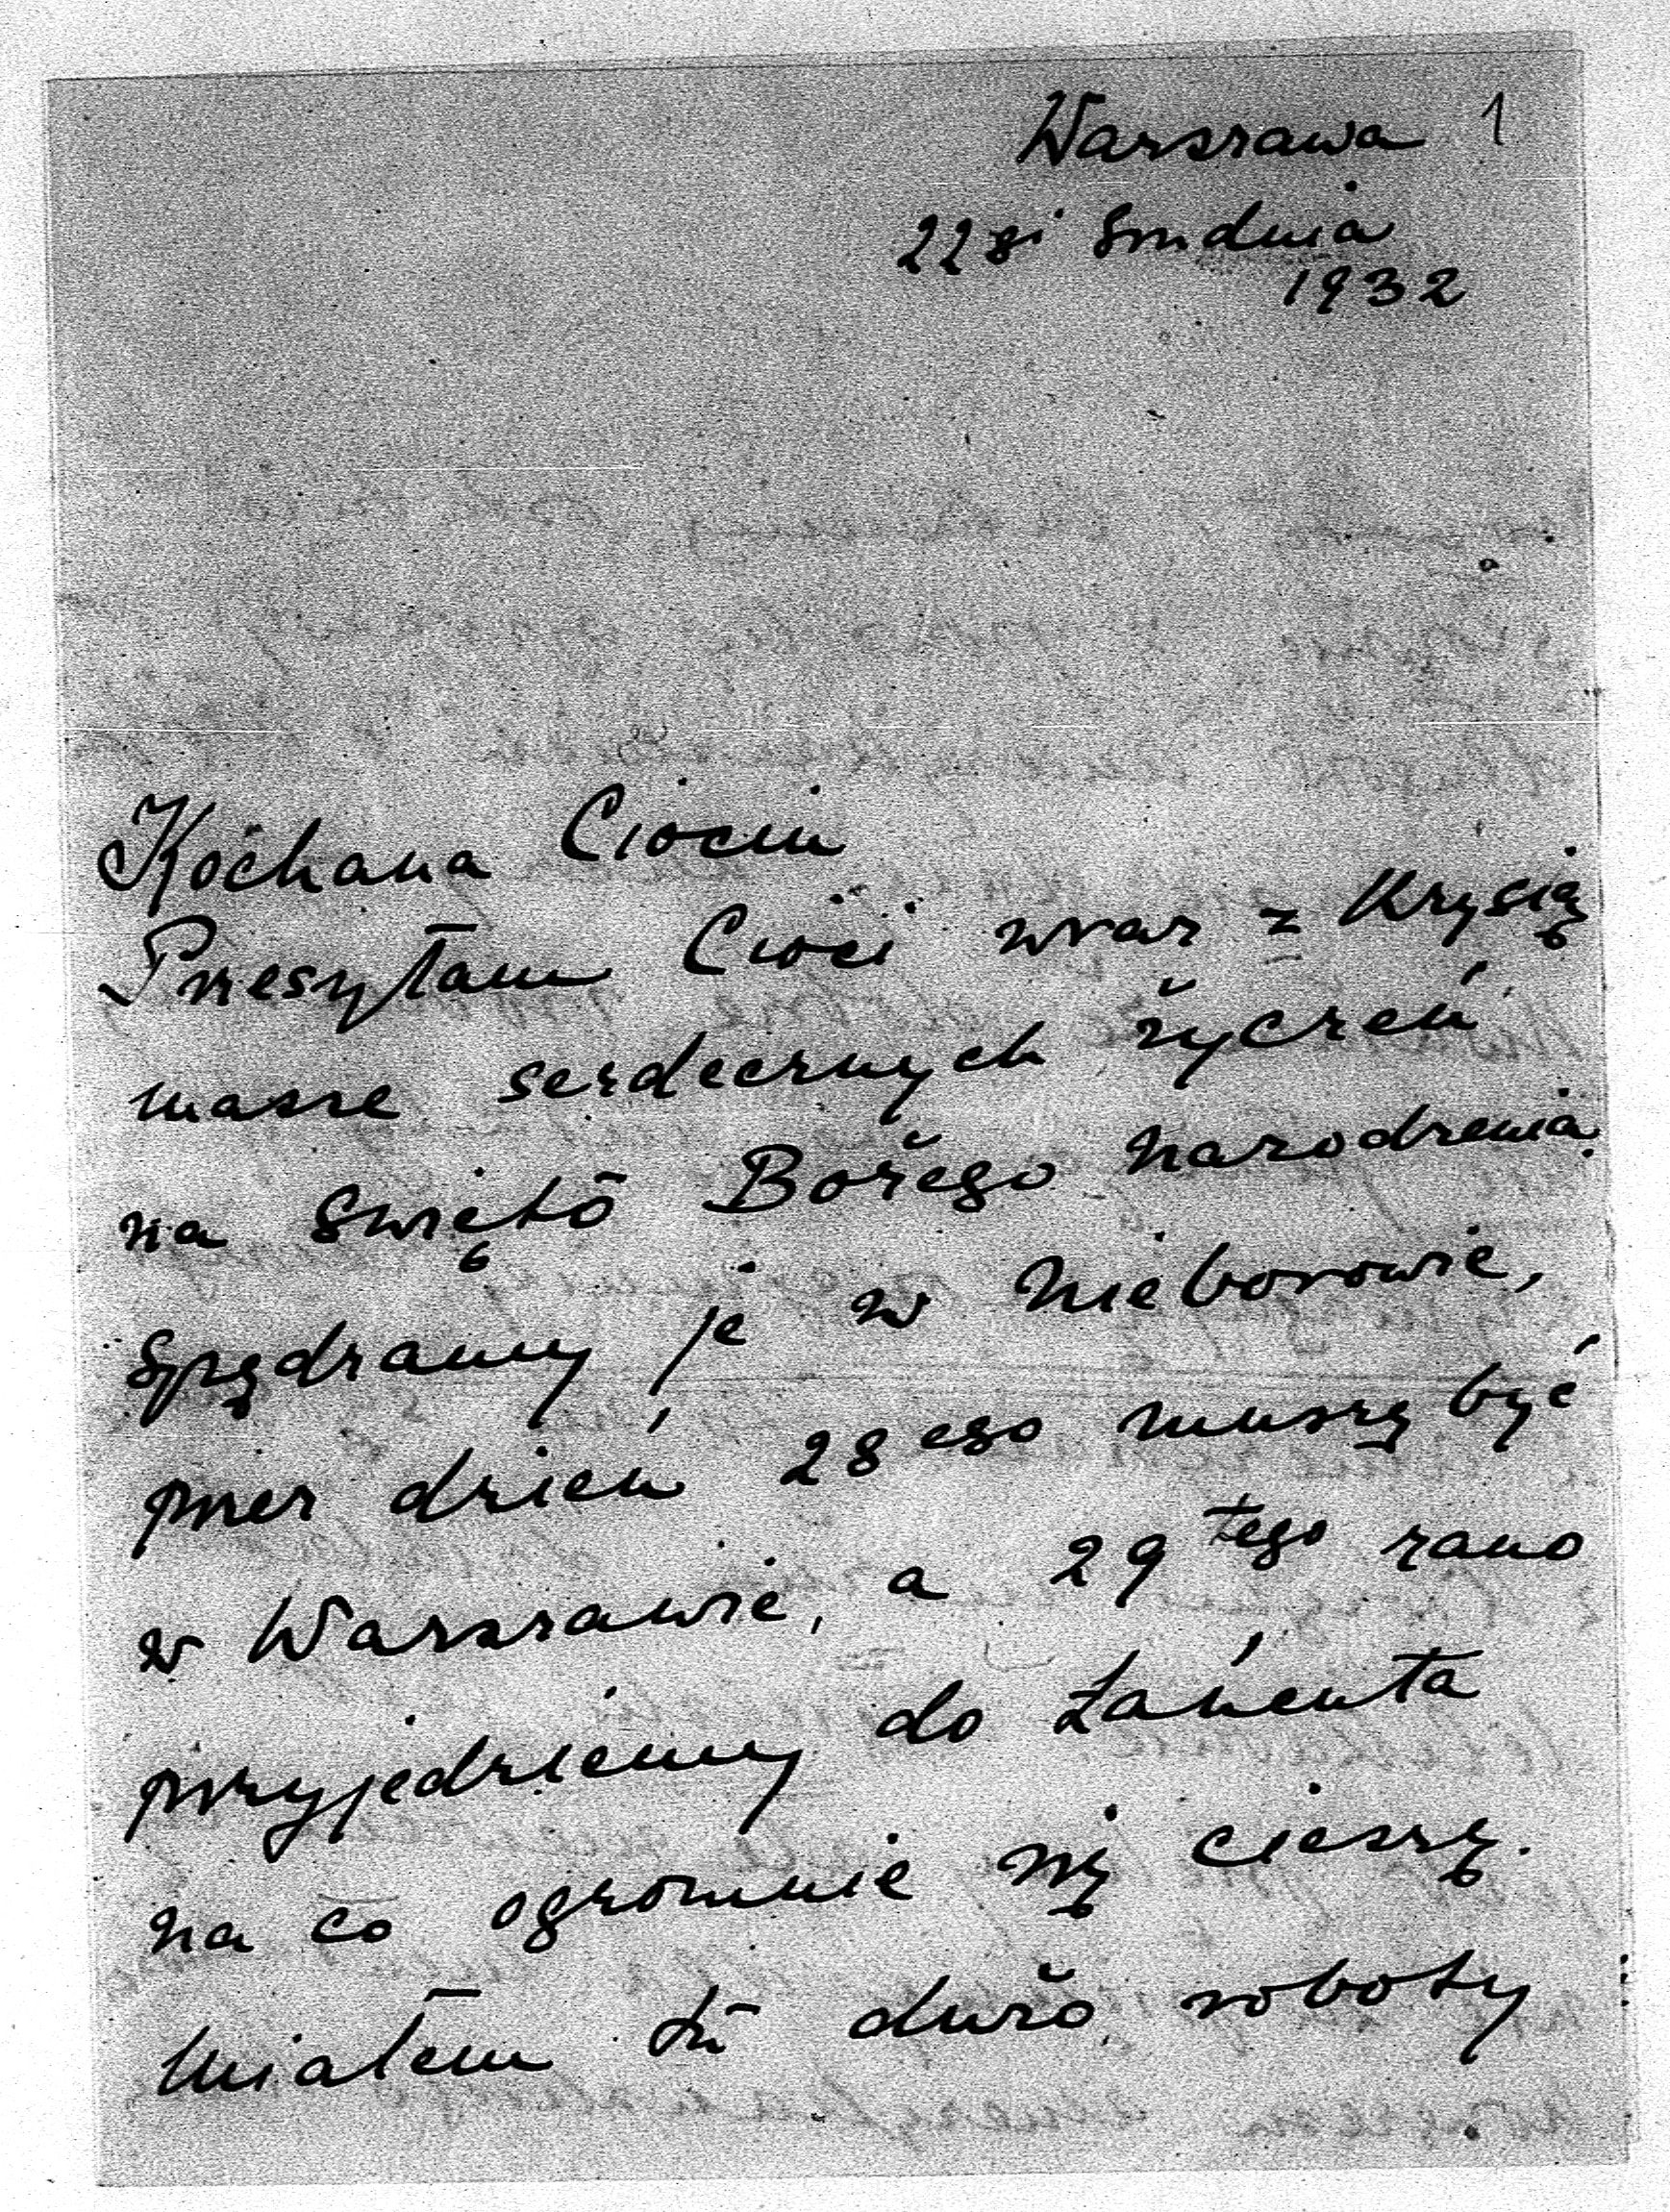 Warszawa 1
22gi Grudnia
1932
Kochana Ciociu
Przesyłam Cioci wraz z Krysią
masze serdecznych życzeń
na Swięto Bożego Narodzenia.
Spędzamy je w Nieborowie,
przez dzień 28ego muszę być
w Warszawie, a 29tego rano
przyjedziemy do Łańcuta
na co ogromnie się cieszę.
Miałem tu dużo roboty